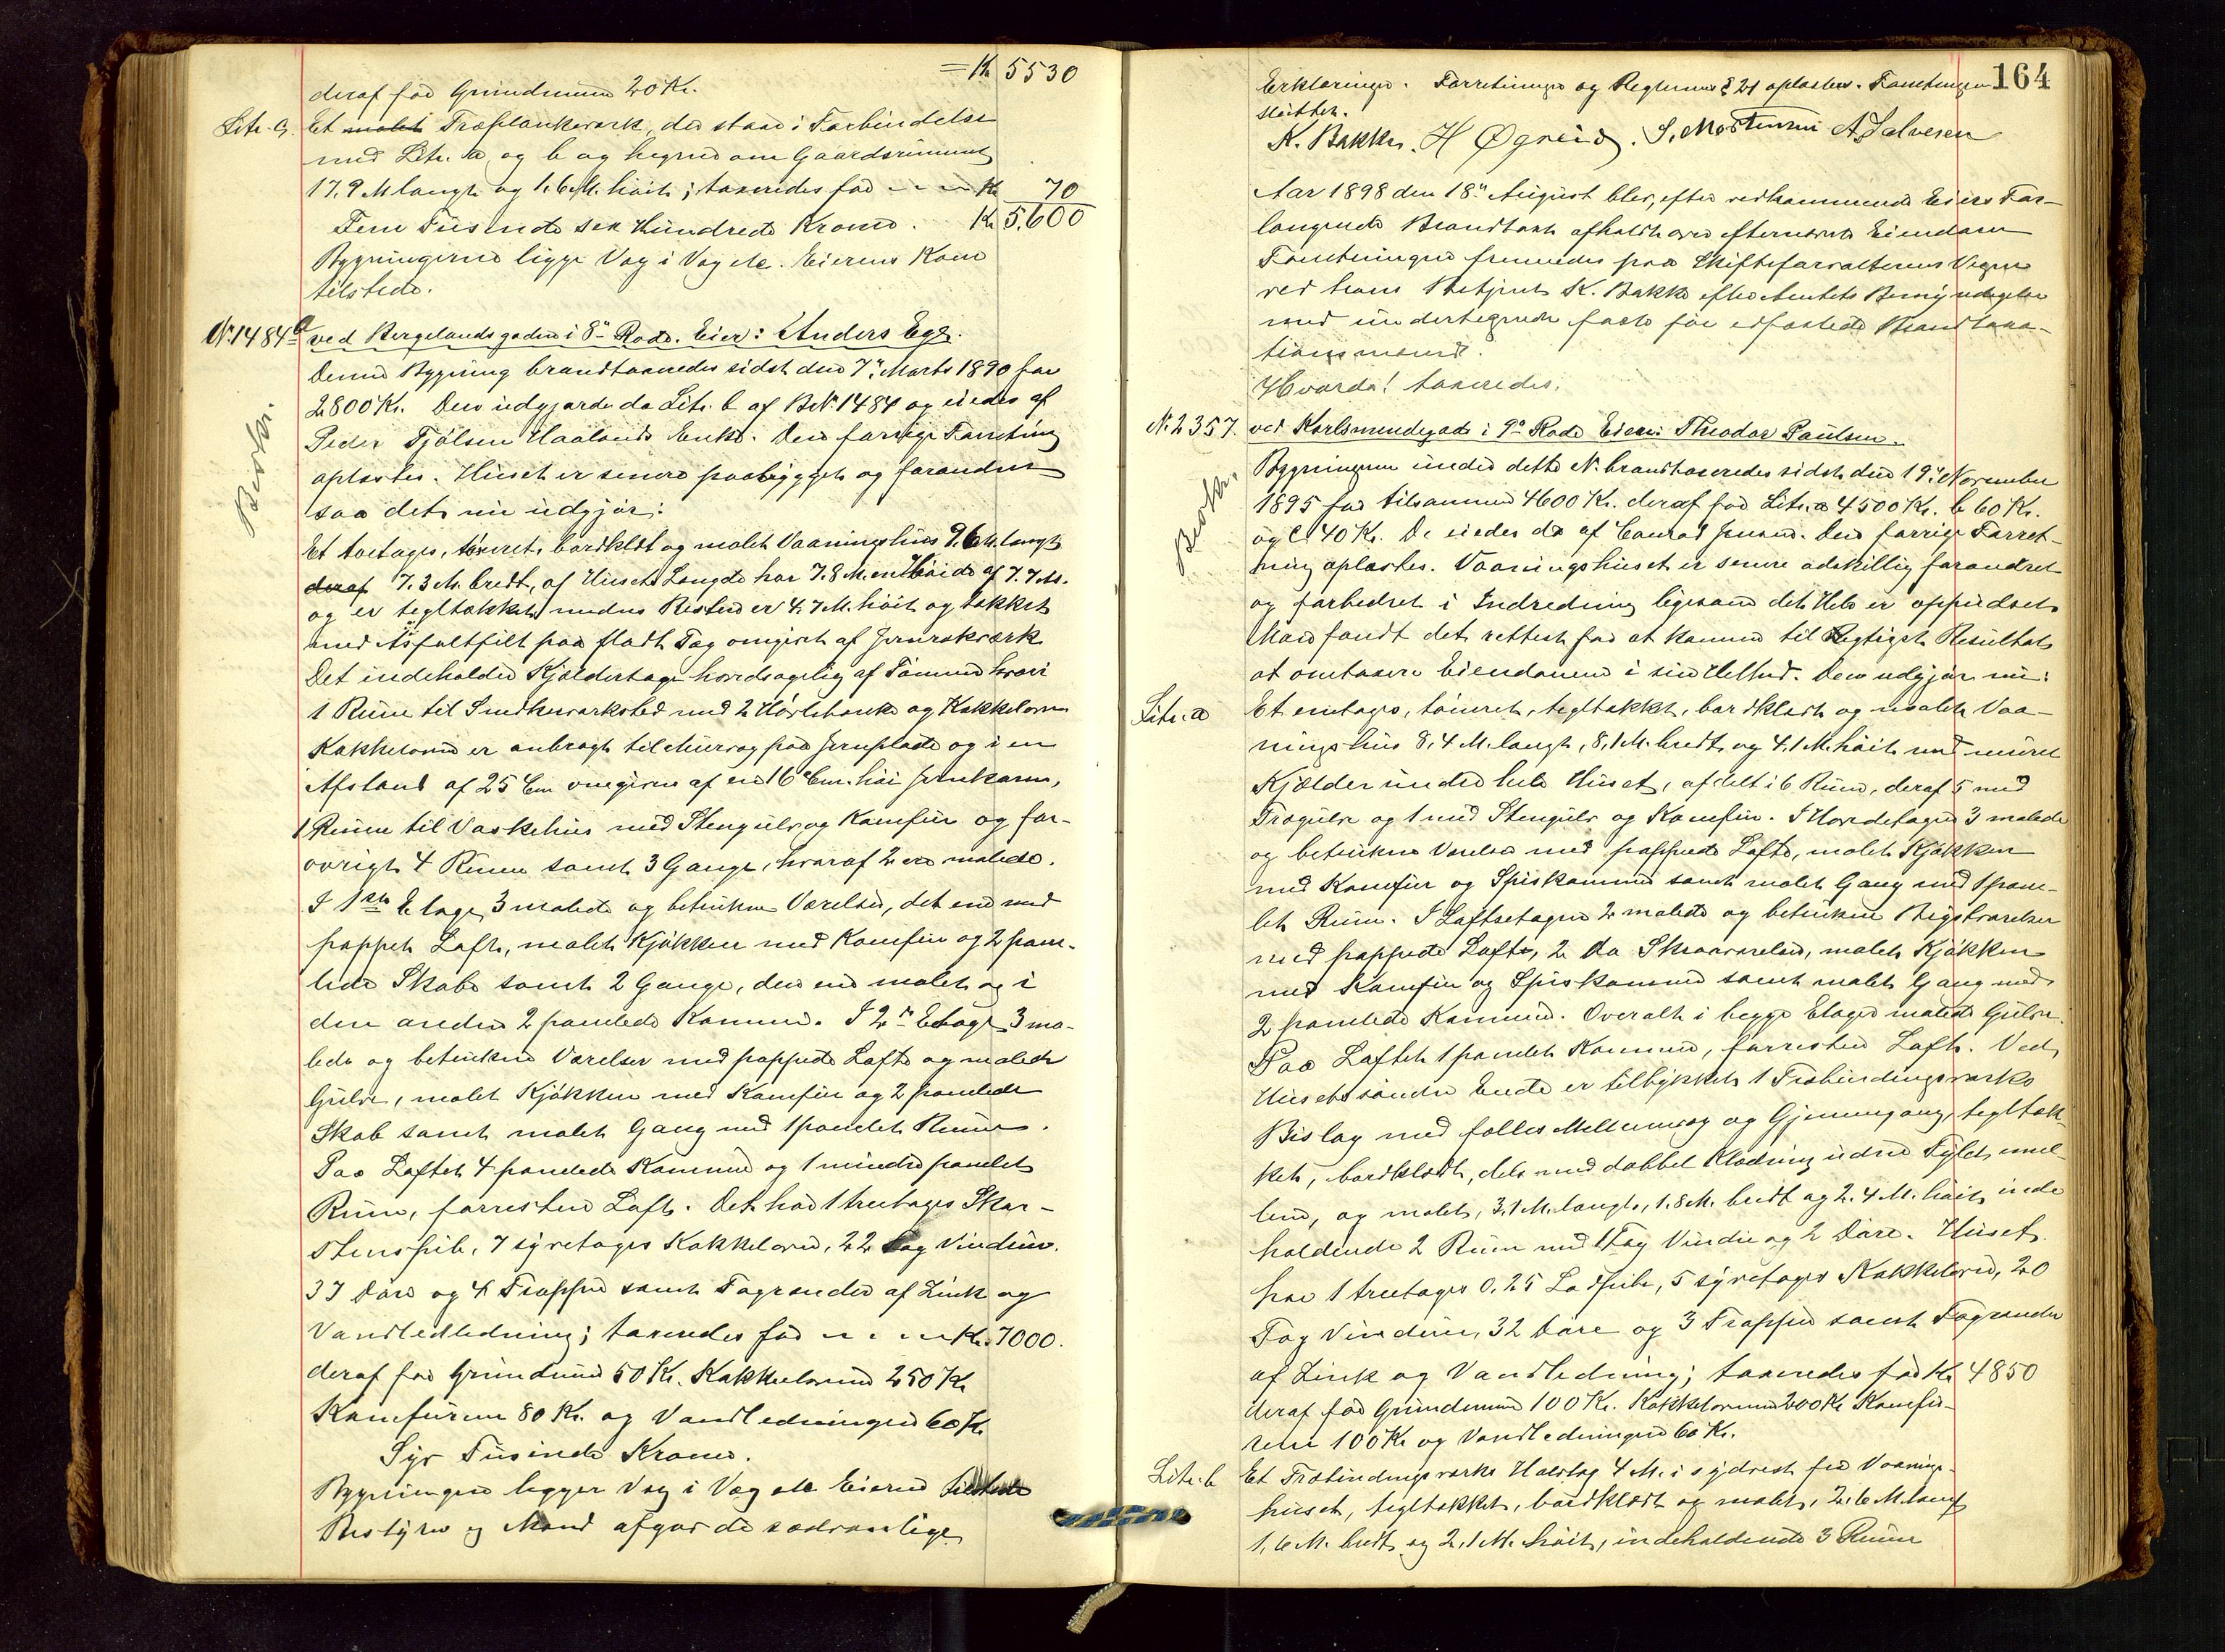 = Kr 5530
deraf for Grundmuren 20 Kr.
Litr. c. Et malet Træplankeværk, der staar i Forbindelse
med Litr. a og b og hegner om Gaardsrummet
17,9 M langt og 1,6 M. høit; taxeredes for - - - Kr 70
Fem Tusinde sex Hundrede Kroner. Kr 5.600
Bygningerne ligge Væg i Væg etc. Eierens Kone
tilstede.
No. 1484a ved Bergelandsgaden i 8de Rode. Eier: Anders Ege.
Denne Bygning brandtaxeredes sidst den 7de Marts 1890 for
2800 Kr. Den udgjorde da Litr. b af BNo. 1484 og eiedes af
Peder Tjølsen Haalands Enke. Den forrige Forretning
oplæstes. Huset er senere paabygget og forandret
saa det nu udgjør:
Beskr.
Et toetages, tømret, bordklædt og malet Vaaningshus 9,6 M. langt
deraf 7.3 M. bredt, af Husets Længde har 7.8 M. en Høide af 7.7 M.
og er tegltækket, medens Resten er 4.7 M. høit og tækket
med Asfaltfilt paa fladt Tag omgivet af Jernrækværk
Det indeholder Kjælderetage hovedsagelig af Tømmer hvori
1 Rum til Snedkerværksted med 2 Høvlebænke og Kakkelovn
Kakkelovnen er anbragt til Murvæg paa Jernplade og i en
Afstand af 25 Cm omgiven af en 16 Cm. høi Jernkarm,
1 Rum til Vaskehus med Stengulv og Komfur og for-
øvrigt 4 Rum samt 3 Gange, hvoraf 2 ere malede.
I 1ste Etage 3 malede og betrukne Værelser, det ene med
pappet Loft, malet Kjøkken med Komfur og 2 pane-
lede Skabe samt 2 Gange, den ene malet og i
den anden 2 panelede Kammer. I 2den Etage 3 ma-
lede og betrukne Værelser med pappede Lofte og malede
Gulve, malet Kjøkken med Komfur og 2 panelede
Skab samt malet Gang med 1 panelet Rum.
Paa Loftet 4 panelede Kammer og 1 mindre panelet
Rum, forresten Loft. Det har 1 treetages Skor-
stenspibe, 7 syvetages Kakkelovne, 22 Fag Vinduer.
37 Døre og 4 Trapper samt Tagrender af Zink og
Vandledledning; taxeredes for - - - Kr. 7000.
deraf for Grundmur 50 Kr. Kakkelovnene 250 Kr
Komfurene 80 Kr. og Vandledningen 60 Kr
Syv Tusinde Kroner.
Bygningen ligger Væg i Væg etc Eieren tilstede
Bestyrer og Mænd afgav de sædvanlige
164
Erklæringer. Forretningen og Reglernes § 21 oplæstes. Forretningen
sluttet.
K. Bakke. H Øgreid. S. Mortensen A. Salvesen
Aar 1898 den 18de August blev, efter vedkommende Eiers For-
langende Brandtaxt afholdt over efternævnte Eiendom
Forretningen fremmedes paa Skifteforvalterens Vegne
ved hans Betjent K. Bakke efter Amtets Bemyndigelse
med undertegnede faste før edfæstede Brandtaxa-
tionsmænd.
Hvorda! taxeredes.
No. 2357. ved Karlsmindegade i 9de Rode Eier: Theodor Paulsen.
Beskr.
Bygningerne under dette No. brandtaxeredes sidst den 19de November
1895 for tilsammen 4600 Kr. deraf for Litr. a 4500 Kr. b 60 Kr.
og c 40 Kr. De eiedes da af Conrad Jensen. Den forrige Forret-
ning oplæstes. Vaaningshuset er senere adskillig forandret
og forbedret i Indredning ligesom det Hele er oppudset
Man fandt det rettest for at komme til rigtigst Resultat
at omtaxere Eiendommen i sin Helhed. Den udgjør nu:
Litr. a Et enetages, tømret, tegltækket, bordklædt og malet Vaa-
ningshus 8,4 M. langt, 8,1 M. bredt og 4.1 M. høit med muret
Kjælder under hele Huset, afdelt i 6 Rum, deraf 5 med
Trægulv og 1 med Stengulv og Komfur. I Hovedetagen 3 malede
og betrukne Værelser med pappede Lofte, malet Kjøkken
med Komfur og Spiskammer samt malet Gang med 1 pane-
let Rum. I Loftsetagen 2 malede og betrukne Kvistværelser
med pappede Lofte, 2 Do Skraaværelser, malet Kjøkken
med Komfur og Spiskammer samt malet Gang med
2 panelede Kammer. Overalt i begge Etager malede Gulve.
Paa Loftet 1 panelet Kammer, forresten Loft. Ved
Husets søndre Ende er tilbygget 1 Træbindingsværks
Bislag med fælles Mellemvæg og Gjennemgang, tegltæk-
ket, bordklædt, dels med dobbel Klædning uden Fyld imel-
lem, og malet, 3.1 M. langt, 1.8 M. bredt og 2.4 M. høit, inde
holdende 2 Rum med 1 Fag Vindu og 2 Døre. Huset
har 1 treetages 0.25 Lødpibe, 5 syvetages Kakkelovne, 20
Fag Vinduer, 32 Døre og 3 Trapper samt Tagrender
af Zink og Vandledning; taxeredes for Kr 4850
deraf for Grundmuren 100 Kr. Kakkelovnene 200 Kr Komfu-
rene 100 Kr og Vandledningen 60 Kr.
Litr. b Et Træbindingsværks Halvtag 4 M. i sydvest for Vaanings-
huset, tegltækket, bordklædt og malet, 2,6 M. langt
1,6 M. bredt og 2,1 M. høit, indeholdende 3 Rum